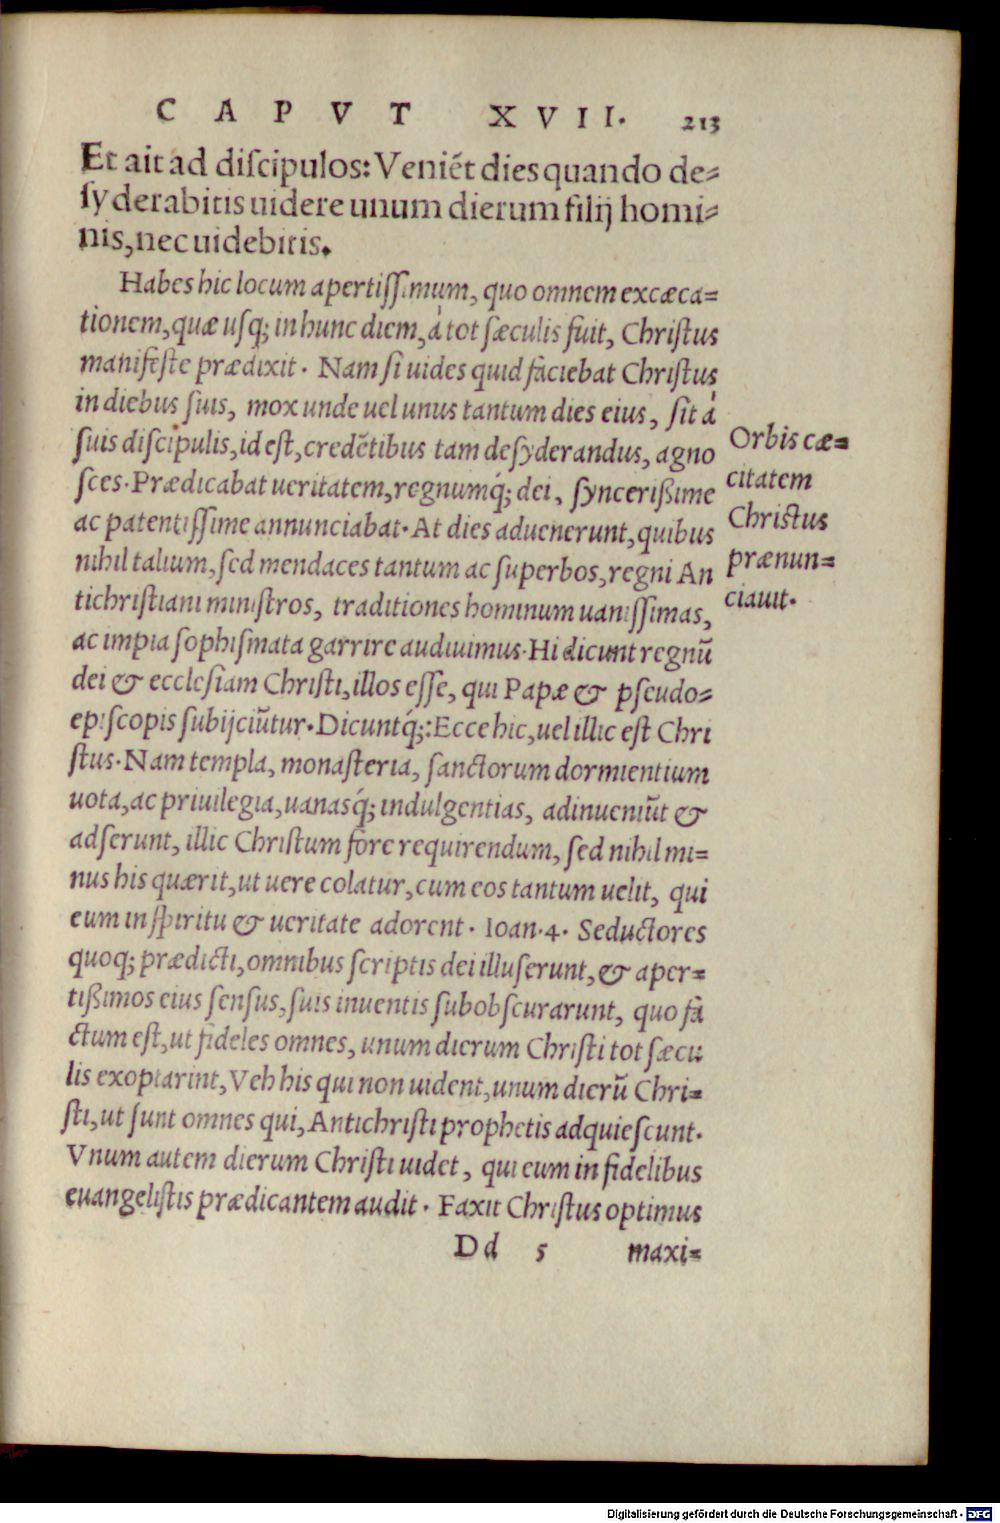 CAPVT XVII. 213
Et ait ad diſcipulos: Veniẽt dies quando de⸗
ſyderabitis uidere unum dierum filij homi⸗
nis, nec uidebitis.
Habes hic locum apertiſſimum, quo omnem excæca⸗
tionem, quæ uſq; in hunc diem, à tot ſæculis fuit, Chriſtus
manifeſte prædixit. Nam ſi uides quid faciebat Chriſtus
in diebus ſuis, mox unde uel unus tantum dies eius, ſit à
ſuis diſcipulis, id eſt, credẽtibus tam deſyderandus, agno
ſces. Prædicabat ueritatem, regnumq́; dei, ſyncerißime
ac patentiſſime annunciabat. At dies aduenerunt, quibus
nihil talium, ſed mendaces tantum ac ſuperbos, regni An
tichriſtiani miniſtros, traditiones hominum uaniſſimas,
ac impia ſophiſmata garrire audiuimus. Hi dicunt regnũ
dei & eccleſiam Chriſti, illos eſſe, qui Papæ & pſeudo⸗
epiſcopis ſubijciũtur. Dicuntq́;: Ecce hic, uel illic eſt Chri
ſtus. Nam templa, monaſteria, ſanctorum dormientium
uota, ac priuilegia, uanasq́; indulgentias, adinueniũt &
adſerunt, illic Chriſtum fore requirendum, ſed nihil mi⸗
nus his quærit, ut uere colatur, cum eos tantum uelit, qui
eum in ſpiritu & ueritate adorent. Ioan. 4. Seductores
quoq; prædicti, omnibus ſcriptis dei illuſerunt, & aper⸗
tißimos eius ſenſus, ſuis inuentis ſubobſcurarunt, quo fa
ctum eſt, ut fideles omnes, unum dierum Chriſti tot ſæcu
lis exoptarint, Veh his qui non uident, unum dierũ Chri⸗
ſti, ut ſunt omnes qui, Antichriſti prophetis adquieſcunt.
Vnum autem dierum Chriſti uidet, qui eum in fidelibus
euangeliſtis prædicantem audit. Faxit Chriſtus optimus
Dd 5 maxi⸗
Orbis cæ⸗
citatem
Chriſtus
prænun⸗
ciauit.
Digitalisierung gefördert durch die Deutsche Forschungsgemeinschaft - DFG